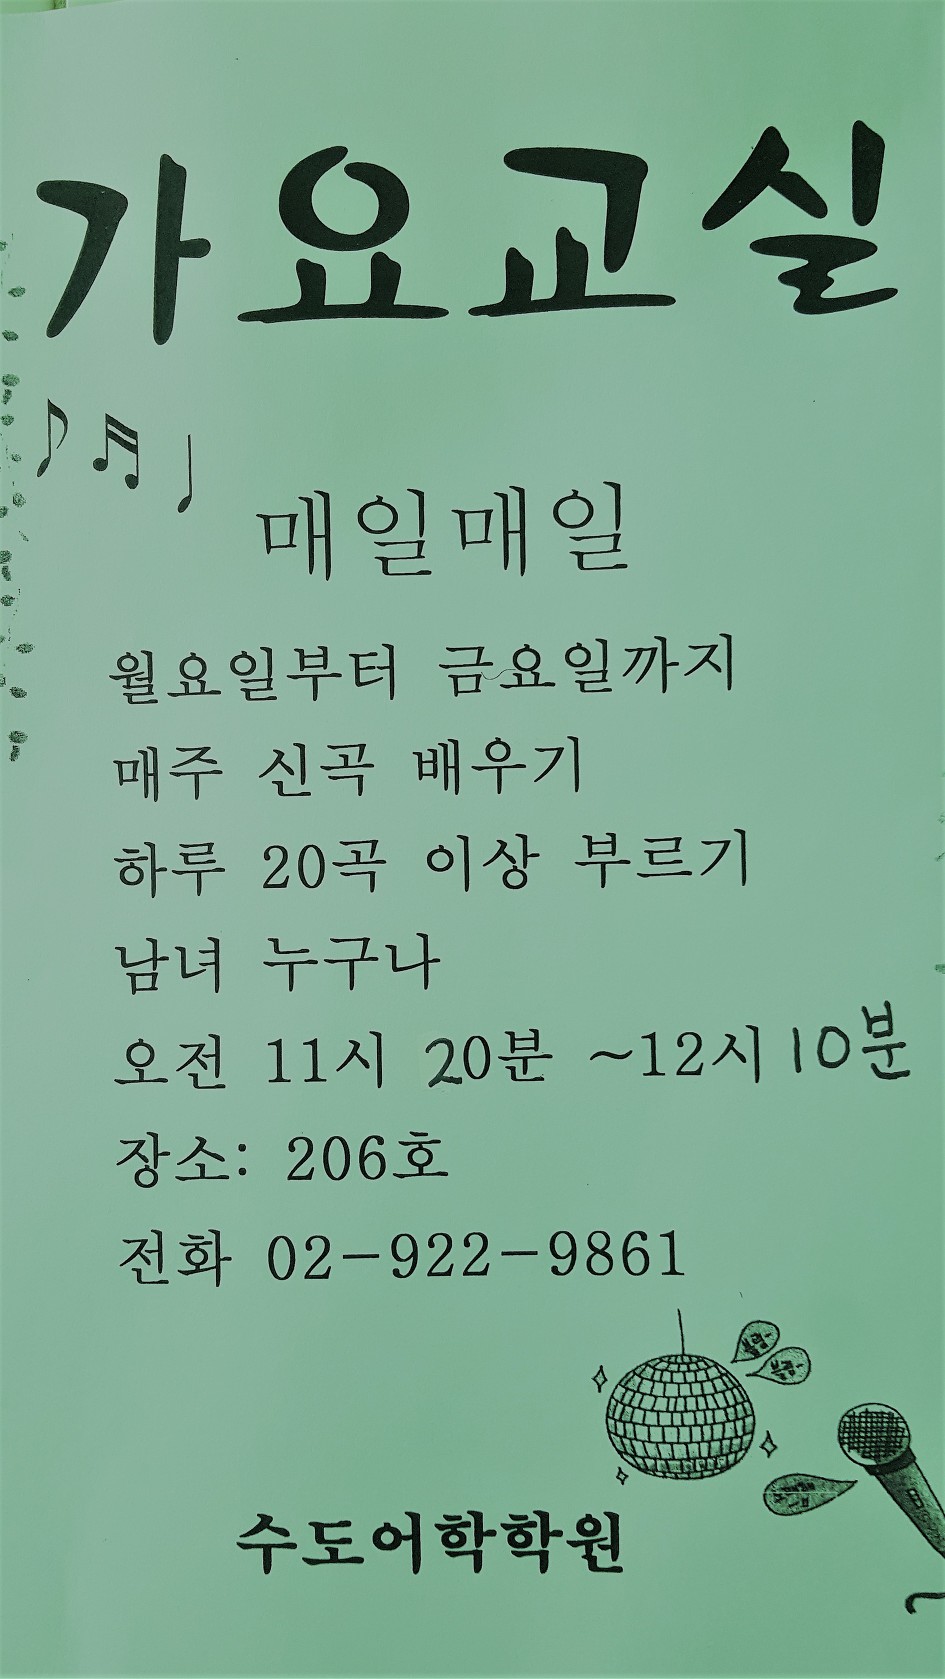 가요교실
매일매일
월요일부터 금요일까지
매주 신곡 배우기
하루 20곡 이상 부르기
남녀 누구나
오전 11시 20분 ~12시 10분
장소: 206호
전화 02-922-9861
수도어학학원